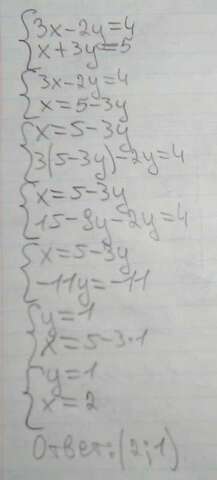 3x-2y=4
x+3y=5
3x-2y=4
x=5-3y
x=5-3y
3(5-3y)-2y=4
x=5-3y
15-9y-2y=4
x=5-3y
-11y=-11
y=1
x=5-3·1
y=1
x=2
Ответ:(2;1)